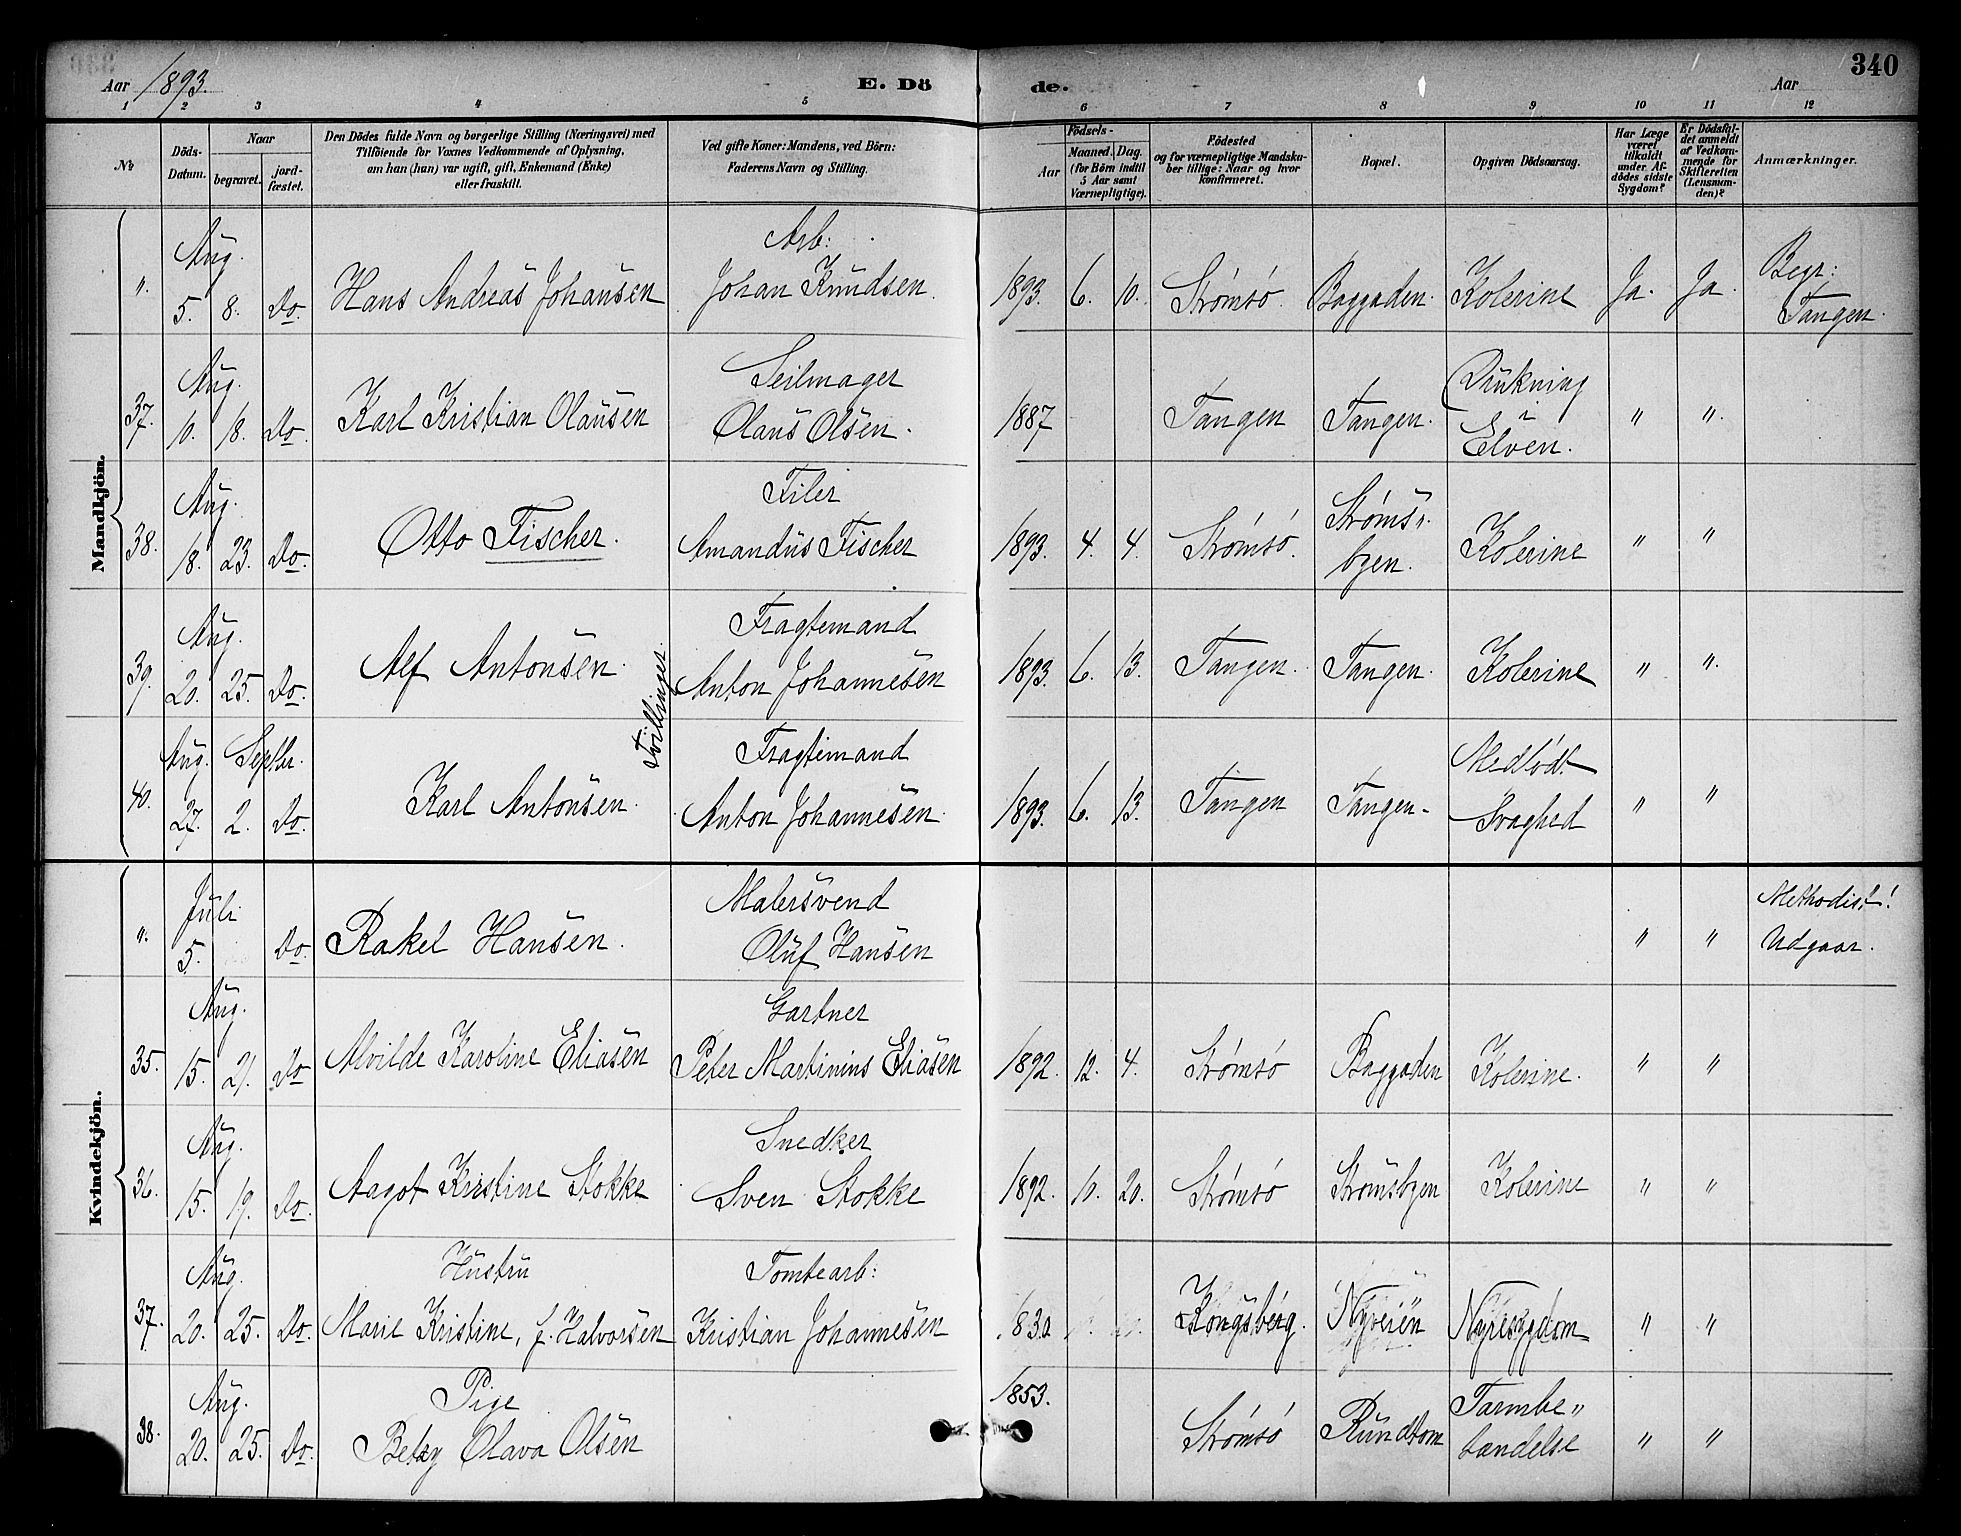 Aar 1893. E. Dö de. Aar 340
1 2 3 4 5 6 7 8 9 10 11 12
No
Döds-Datum.
Naar
begravet.
jord-fæstet.
Den Dödes fulde Navn og borgerlige Stilling (Næringsvei) med
Tilföiende for Voxnes Vedkommende af Oplysning,
om han (hun) var ugift, gift, Enkemand (Enke)
eller fraskilt.
Ved gifte Koner: Mandens, ved Börn:
Faderens Navn og Stilling.
Födsels-
Aar
Maaned. Dag.
(for Börn indtil
5 Aar samt
Værnepligtige).
Födested
og for værnepligtige Mandsku-
ber tillige: Naar og hvor
konfirmeret.
Bopæl.
Opgiven Dödsaarsag.
Har Læge
været
tilkaldt
under Af-
dödes sidste
Sygdom?
Er Dödsfal-
det anmeldt
af Vedkom-
mende for
Skifteretten
(Lensman-
den)?
Anmærkninger.
Mandkjön.
Aug. Arb: Begr:
". 5. 8. Do. Hans Andreas Johansen Johan Knudsen. 1893. 6. 10. Strømsö. Baggaden. Kolerine Ja. Ja. Tangen.
Aug. Seilmager Drukning
37. 10. 18. Do. Karl Kristian Olausen Olaus Olsen. 1887 Tangen Tangen. i Elven. " "
Aug. Filer Strøms"
38. 18. 23. Do. Otto Fischer. Amandus Fischer 1893. 4. 4. Strømsö. byen. Kolerine " "
Aug. Fragtemand
39. 20. 25. Do. Alf Antonsen. Anton Johannesen 1893. 6. 13. Tangen. Tangen. Kolerine " "
Tvillinger
Aug. Septbr. Fragtemand Medfödt
40. 27. 2. Do. Karl Antonsen. Anton Johannesen. 1893. 6. 13. Tangen Tangen. Svaghed " "
Kvindekjön.
Juli Malersvend Methodist!
". 5. Do. Rakel Hansen. Oluf Hansen " " Udgaar.
Aug. Gartner
35. 15. 21. Do Alvilde Karoline Eliasen Peter Martinius Eliasen 1892. 12. 4. Strømsö Baggaden Kolerine. " "
Aug. Snedker
36. 15. 19. Do. Aagot Kristine Stokke Sven Stokke 1892. 10. 20. Strømsö Strømsbyen Kolerine " "
Aug. Hustru Tomtearb:
37. 20. 25. Do. Marie Kristine, f. Halvorsen Kristian Johannesen 1830. Kongsberg. Nyveien Nyresygdom " "
Aug. Pige 1853. Tarmbe"
38. 20. 25. Do. Betzy Olava Olsen Strømsö Rundtom tændelse " "